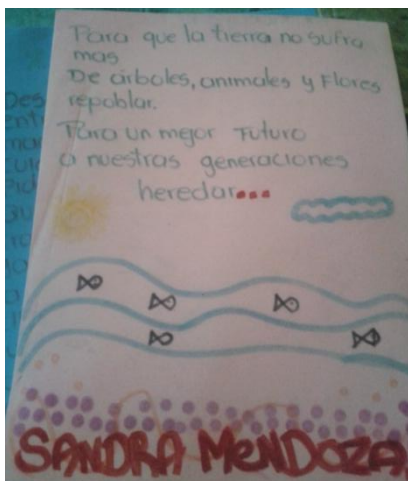 Para que la tierra no sufra
mas
De arboles, animales y Flores
repoblar.
Para un mejor Futuro
a nuestras generaciones
heredar...
SANDRA MENDOZA